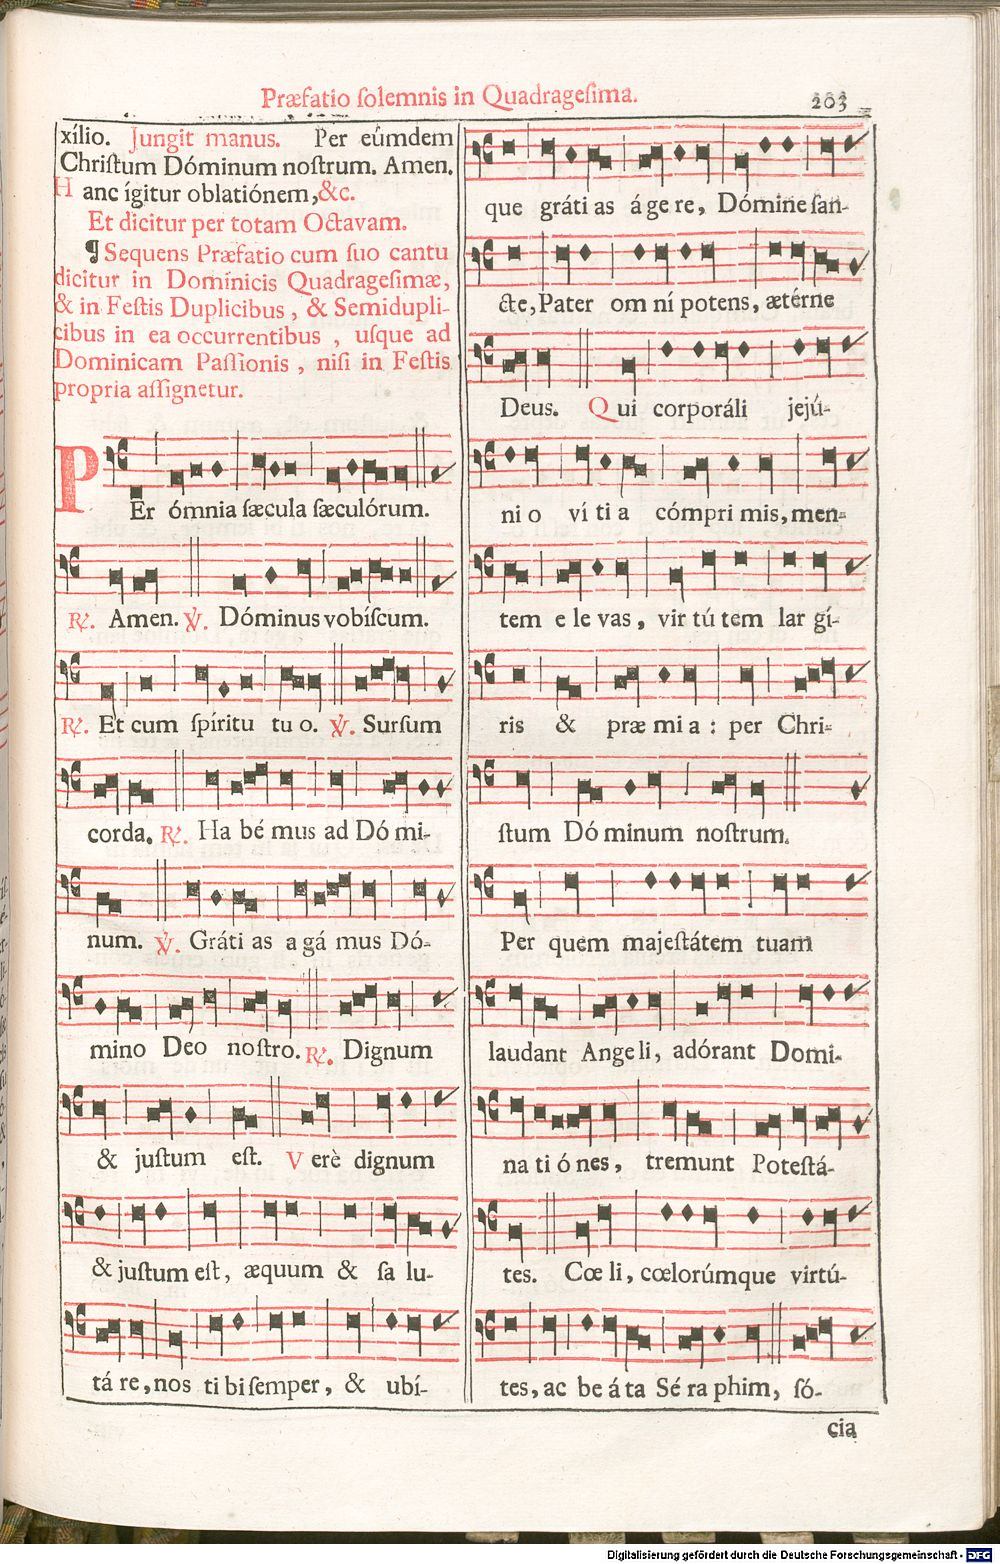 Præfatio ſolemnis in Quadrageſima.
203
xílio. Jungit manus. Per eúmdem
Chriſtum Dóminum noſtrum. Amen.
Hanc ígitur oblatiónem, &c.
Et dicitur per totam Octavam.
¶ Sequens Præfatio cum ſuo cantu
dicitur in Dominicis Quadrageſimæ,
& in Feſtis Duplicibus, & Semidupli-
cibus in ea occurrentibus, uſque ad
Dominicam Paſſionis, niſi in Feſtis
propria aſſignetur.
PEr ómnia ſæcula ſæculórum.
℟. Amen. ℣. Dóminus vobíſcum.
℟. Et cum ſpíritu tuo. ℣. Surſum
corda. ℟. Ha bé mus ad Dó mi-
num. ℣. Gráti as a gá mus Dó-
mino Deo noſtro. ℟. Dignum
& juſtum eſt. Verè dignum
& juſtum eſt, æquum & ſa lu-
tá re, nos ti bi ſemper, & ubí-
que gráti as á ge re, Dómine ſan-
cte, Pater om ní potens, ætérne
Deus. Qui corporáli jejú-
ni o ví ti a cómpri mis, men-
tem e le vas, vir tú tem lar gí-
ris & præ mi a : per Chri-
ſtum Dó minum noſtrum.
Per quem majeſtátem tuam
laudant Ange li, adórant Domi-
na ti ó nes, tremunt Poteſtá-
tes. Cœ li, cœlorúmque virtú-
tes, ac be á ta Sé ra phim, ſó-
cia
Digitalisierung gefördert durch die Deutsche Forschungsgemeinschaft - DFG